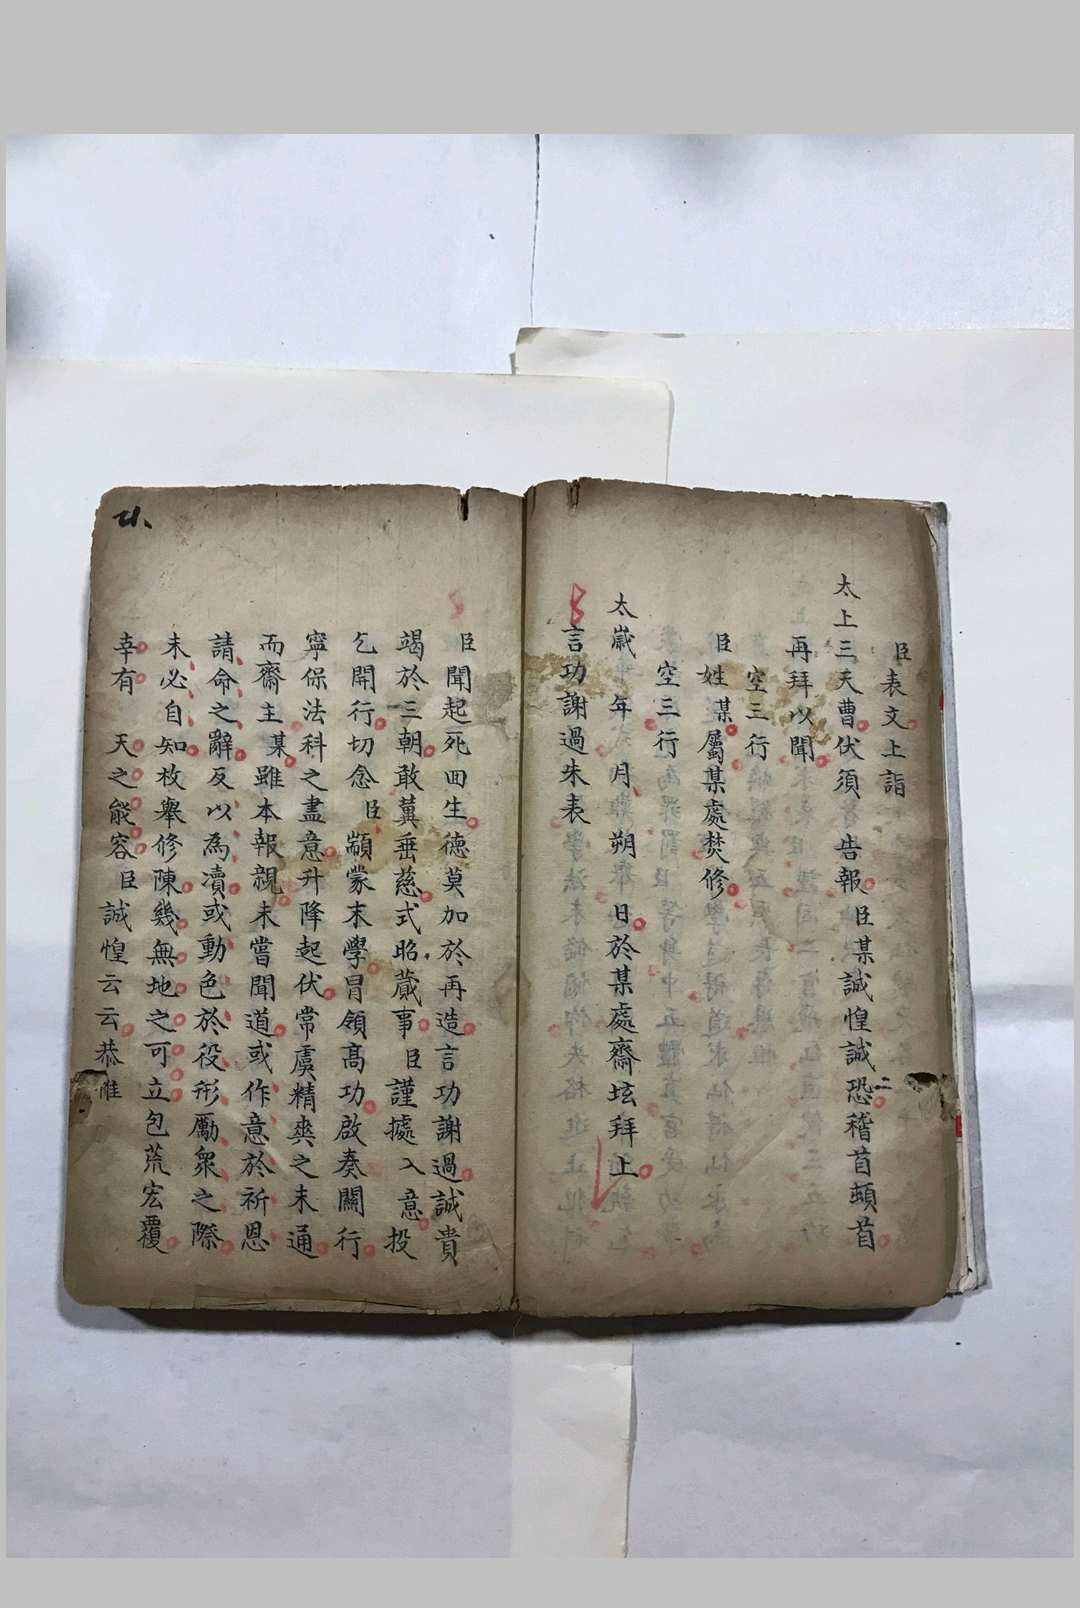 臣表文上詣
太上三天曹伏須　告報臣某誠惶誠恐稽首頓首
再拜以聞
空三行
臣姓某屬某處焚修
空三行
太歲　年　月　朔　日於某處齋壇拜上
言功謝過朱表
臣聞起死回生德莫加於再造言功謝過誠貴
竭於三朝敢冀垂慈式昭蕆事臣謹據入意投
乞開行切念臣顓蒙末學冒領高功啟奏關行
寧保法科之盡意升降起伏常虞精爽之未通
而齋主某雖本報親未嘗聞道或作意於祈恩
請命之辭反以為瀆或動色於役形勵衆之際
未必自知枚舉修陳幾無地之可立包荒宏覆
幸有　天之能容臣誠惶云云恭惟